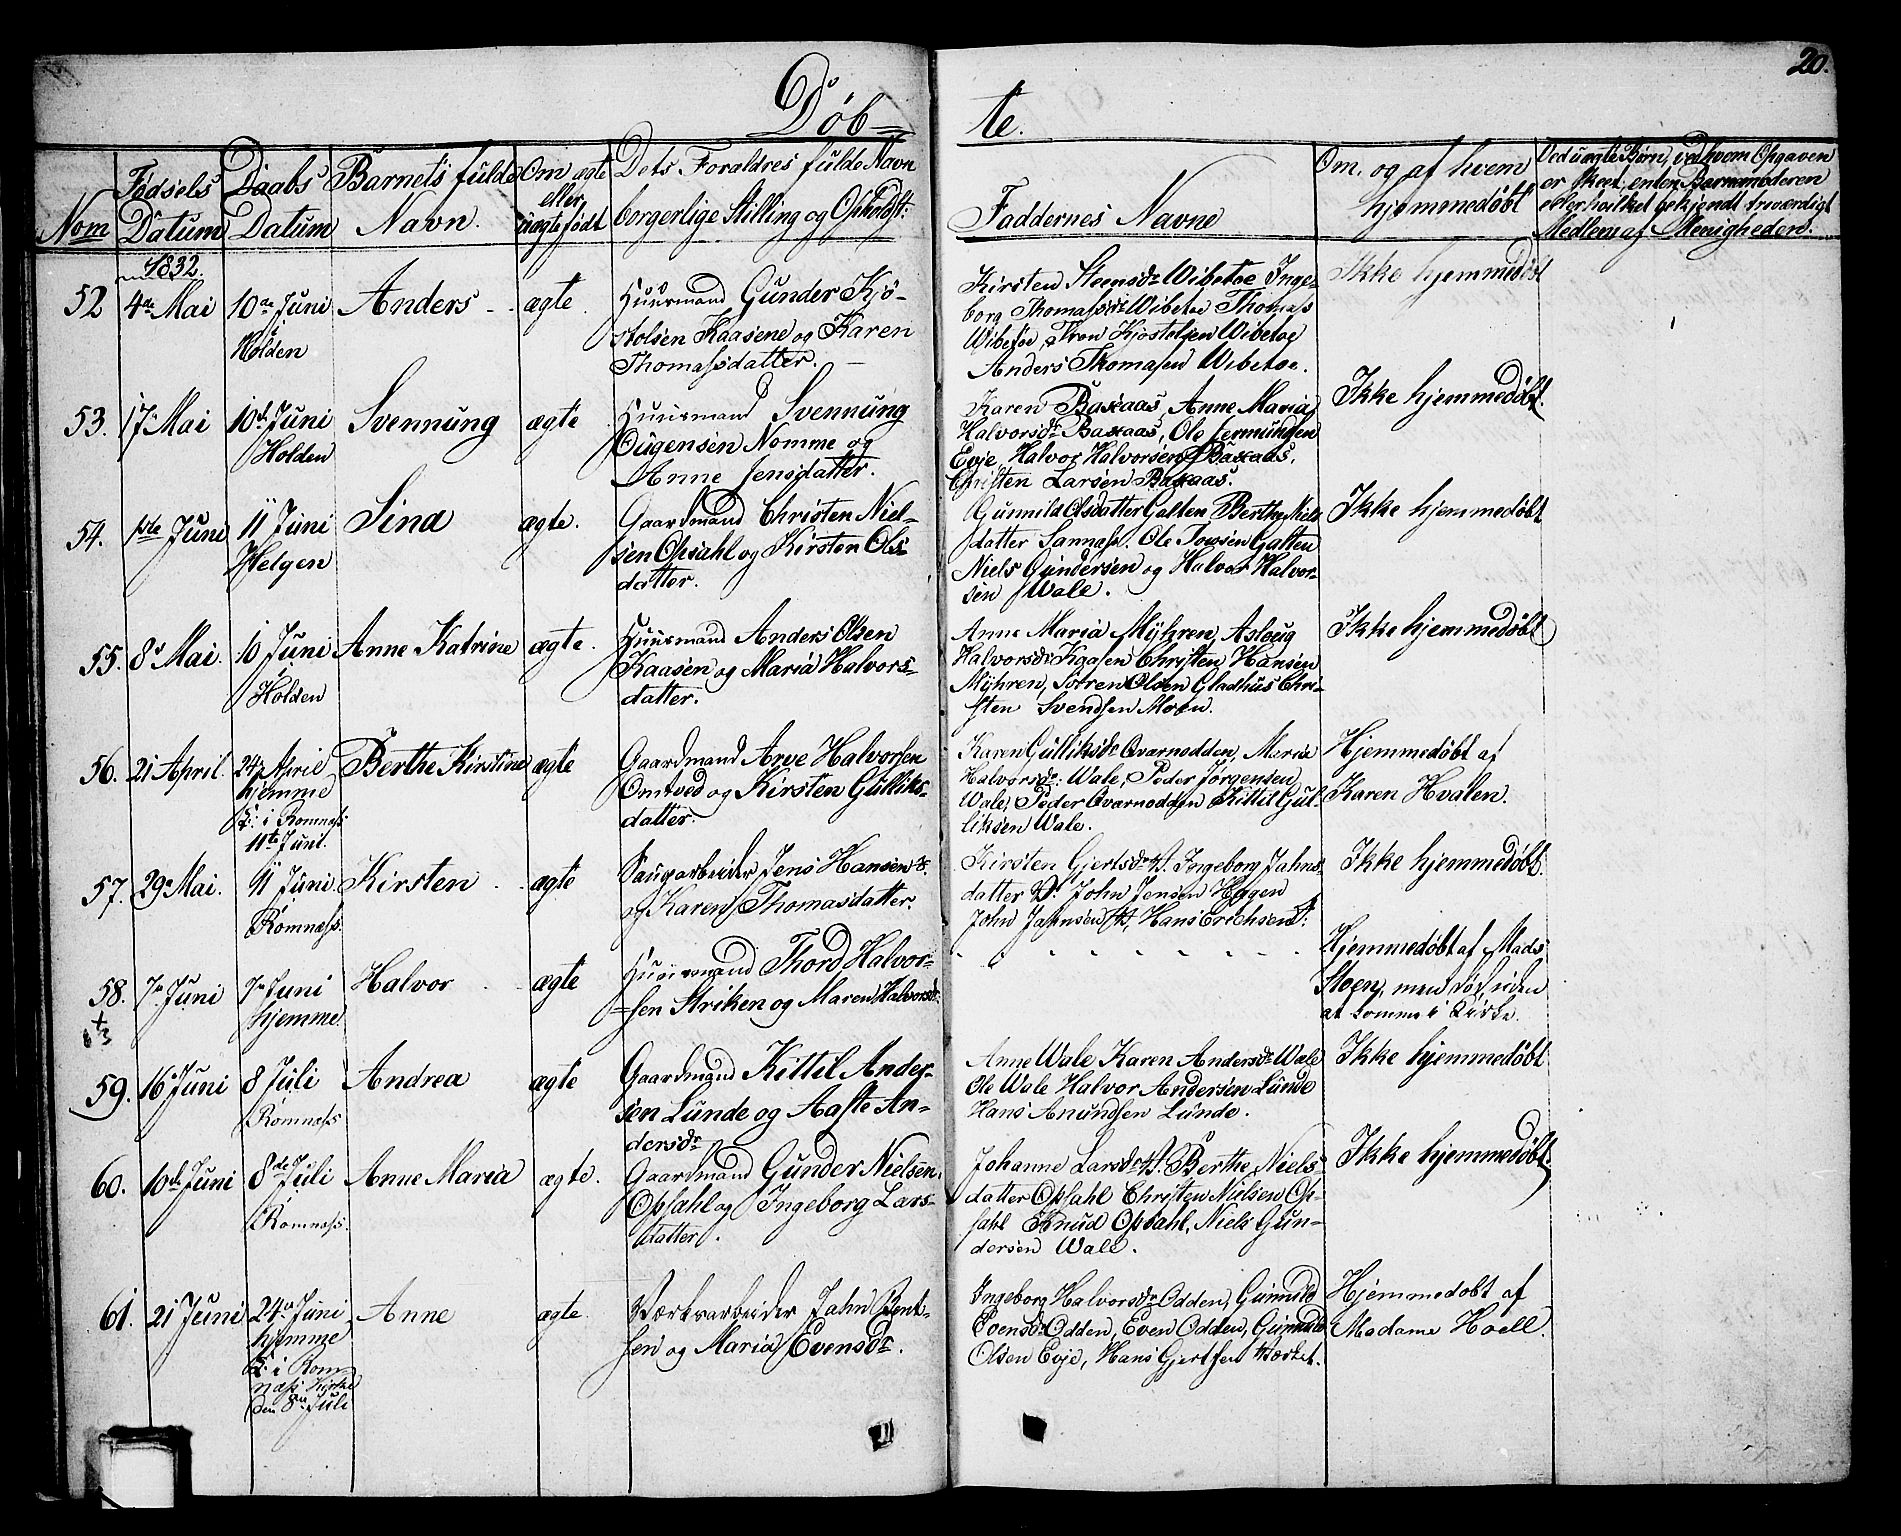 20.
Døb=
te.
Nom
Fødsels
Datum
Daabs
Datum
Barnets fulde
Navn.
Om ægte
eller
uægte født
Dets Foraldres fulde Navn
borgerlige Stilling og Opholdst:
Faddernes Navne
Om, og af hvem
hjemmedøbt
Ved uægte Børn, ved hvem Opgaven
er skeet, enten Barnemoderen
eller hvilket bekjendt troværdigt
Medlem af Menigheden.
1832.
52
4de Mai
10de Juni
i
Holden
Anders
ægte
Huusmand Gunder Kjø-
stolsen Kaasene og Karen
Thomassdatter.
Kirsten Steensdr Wibetoe Inge-
borg Thomassdr Wibetoe Thomass
Wibetoe, Tron Kjostolsen Wibetoe
Anders Thomasen Wibetoe.
Ikke hjemmedøbt
53.
17 Mai
10de Juni
Holden
Svennung
ægte
Huusmand Svennung
Ougensen Nomme og
Anne Jensdatter.
Karen Baxaas, Anne Maria
Halvorsdr Baxaas, Ole Jermundsen
Evje, Halvor Halvorsen Baxaas,
Christen Larsen Baxaas.
Ikke hjemmedøbt.
54.
1ste Juni
11 Juni
Helgen
Sina
ægte.
Gaardmand Christen Niel-
sen Opsahl og Kirsten Ols
datter.
Gunnild Olsdatter Galten Berthe Niels
datter Sannass. Ole Towsen Galten
Niels Gundersen og Halvor Halvor-
sen Wale.
Ikke hjemmedøbt
55.
8 Mai.
10 Juni
i
Holden
Anne Katrine
ægte.
Huusmand Anders Olsen
Kaasen og Maria Halvors-
datter.
Anne Maria Myhren, Aslaug
Halvorsdr Kaasen Christen Hansen
Myhren, Soren Olsen Gladhus Chri-
sten Svendsen Moen.
Ikke hjemmedøbt
56.
21 April.
24 April
hjemme
K: i Romnass:
11te Juni.
Berthe Kirstine
ægte
Gaardmand Arve Halvorsen
Omtved og Kirsten Gulliks-
datter.
Karen Gulliksdr Qvarnodden, Maria
Halvorsdr: Wale, Peder Jørgensen
Wale, Peder Qvarnodden Kittil Gul-
liksen Wale.
Hjemmedøbt af
Karen Hvalen.
57.
29 Mai.
11 Juni
i
Romnass.
Kirsten
ægte
Saugarbeider Jens Hansen
og Karen Thomasdatter.
Kirsten Gjertsdr Ingeborg Jahns-
datter John Jensen Hagen
John Jahnsen Hans Erichsen
Ikke hjemmedøbt.
58.
7 Juni
7 Juni
hjemme
Halvor
ægte
Huusmand Thord Halvor-
sen Striken og Maren Halvorsdr:
Hjemmedøbt af Mads
Stoen, men død inden
at komme i Kirke.
59.
16 Juni
8 Juli
Romnass
Andrea
ægte
Gaardmand Kittil Ander-
sen Lunde og Aaste An-
dersdr
Anne Wale Karen Andersdr Wale
Ole Wale Halvor Andersen Lunde
Hans Anundsen Lunde.
Ikke hjemmedøbt
60.
10de Juni
8de Juli
i
Romnass.
Anne Maria
ægte.
Gaardmand Gunder Nielsen
Opsahl og Ingeborg Lars-
datter.
Johanne Larsdr Berthe Niels-
datter Opsahl Christen Nielsen Op-
sahl Knud Opsahl, Niels Gun-
dersen Wale.
Ikke hjemmedøbt.
61.
21 Juni
24 Juni
hjemme
K: i Rom-
næss Kirke
den 8de Juli
Anne
ægte
Værksarbeider Jahn Bent-
sen og Maria Evensdr.
Ingeborg Halvorsdr Odden, Gunnild
Evensdr Odden, Even Odden, Gunnuld
Olsen Evje, Hans Gjertsen Værket.
Hjemmedøbt af
Madame Hoell.